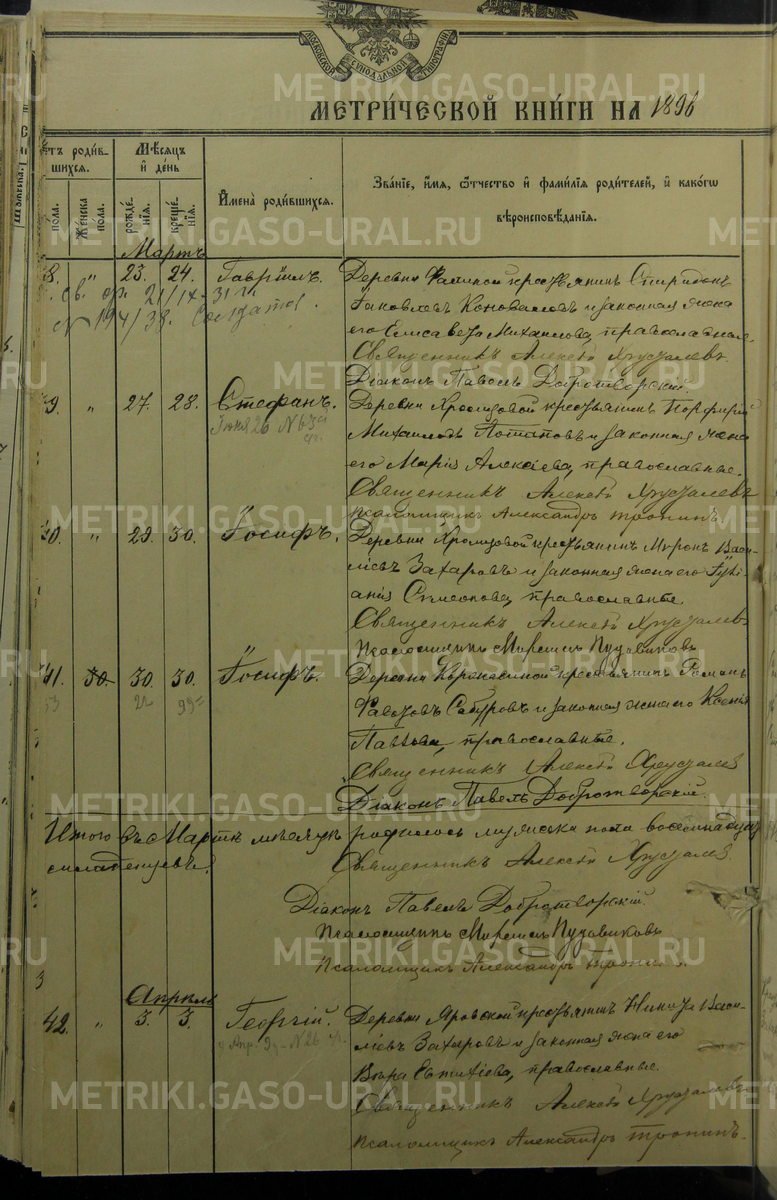 МОСКОВСКОЙ СѴНОДАЛЬНОЙ ТИПОГРАФІИ
METRIKI.GASO-URAL.RU
МЕТРИ́ЧЕСКОЙ КНИ́ГИ НА 1896
тъ роди́в-
шихся.
Мѣ́сяцъ
и҆ де́нь
пола.
Же́нска
пола.
рожде́-
нія.
креще́-
нія.
И҆мена̀ роди́вшихся.
Зва́ніе, и҆́мя, ѻ҆́тчество и҆ фами́лія роди́телей, и҆ како́гѡ
вѣроисповѣ́данія.
Мартъ
8. " 23. 24. Гавріилъ. Деревни крестьянинъ Спиридонъ
Св. 21/IX-31 г.
Яковлевъ Коноваловъ и законная жена
N 194/38. Солдатов.
его Елисавета Михаилова, православные.
Священникъ Алексій Хрусталевъ
Діаконъ Павелъ Добротворскій
9. " 27. 28. Стефанъ. Деревни Хромцовой крестьянинъ Порфирій
Михаиловъ Потаповъ и законная жена
его Марія Алексіева, православные.
Священникъ Алексій Хрусталевъ
Псаломщикъ Александръ Тронинъ
40. " 29. 30. Іосифъ. Деревни Хромцовой крестьянинъ Миронъ Васи-
ліевъ Захаровъ и законная жена его Іулі-
анія Симеонова, православные.
Священникъ Алексій Хрусталевъ
Псаломщикъ Пузовиковъ
41. 30 30. 30. Іосифъ. Деревни крестьянинъ Романъ
Сабуровъ и законная жена его Ксенія
Павлова, православные.
Священникъ Алексій Хрусталевъ
Діаконъ Павелъ Добротворскій.
Итого въ Мартѣ мѣсяцѣ родилось мужеска пола восемнадцать
младенцевъ.
Священникъ Алексій Хрусталевъ.
Діаконъ Павелъ Добротворскій.
Псаломщикъ Пузовиковъ
Псаломщикъ Александръ Тронинъ
Апрѣль
42. " 3. 3. Георгій. Деревни Яровской крестьянинъ Никита Васи-
ліевъ Захаровъ и законная жена его
Вѣра Евтихіева, православные.
Священникъ Алексій Хрусталевъ
Псаломщикъ Александръ Тронинъ.